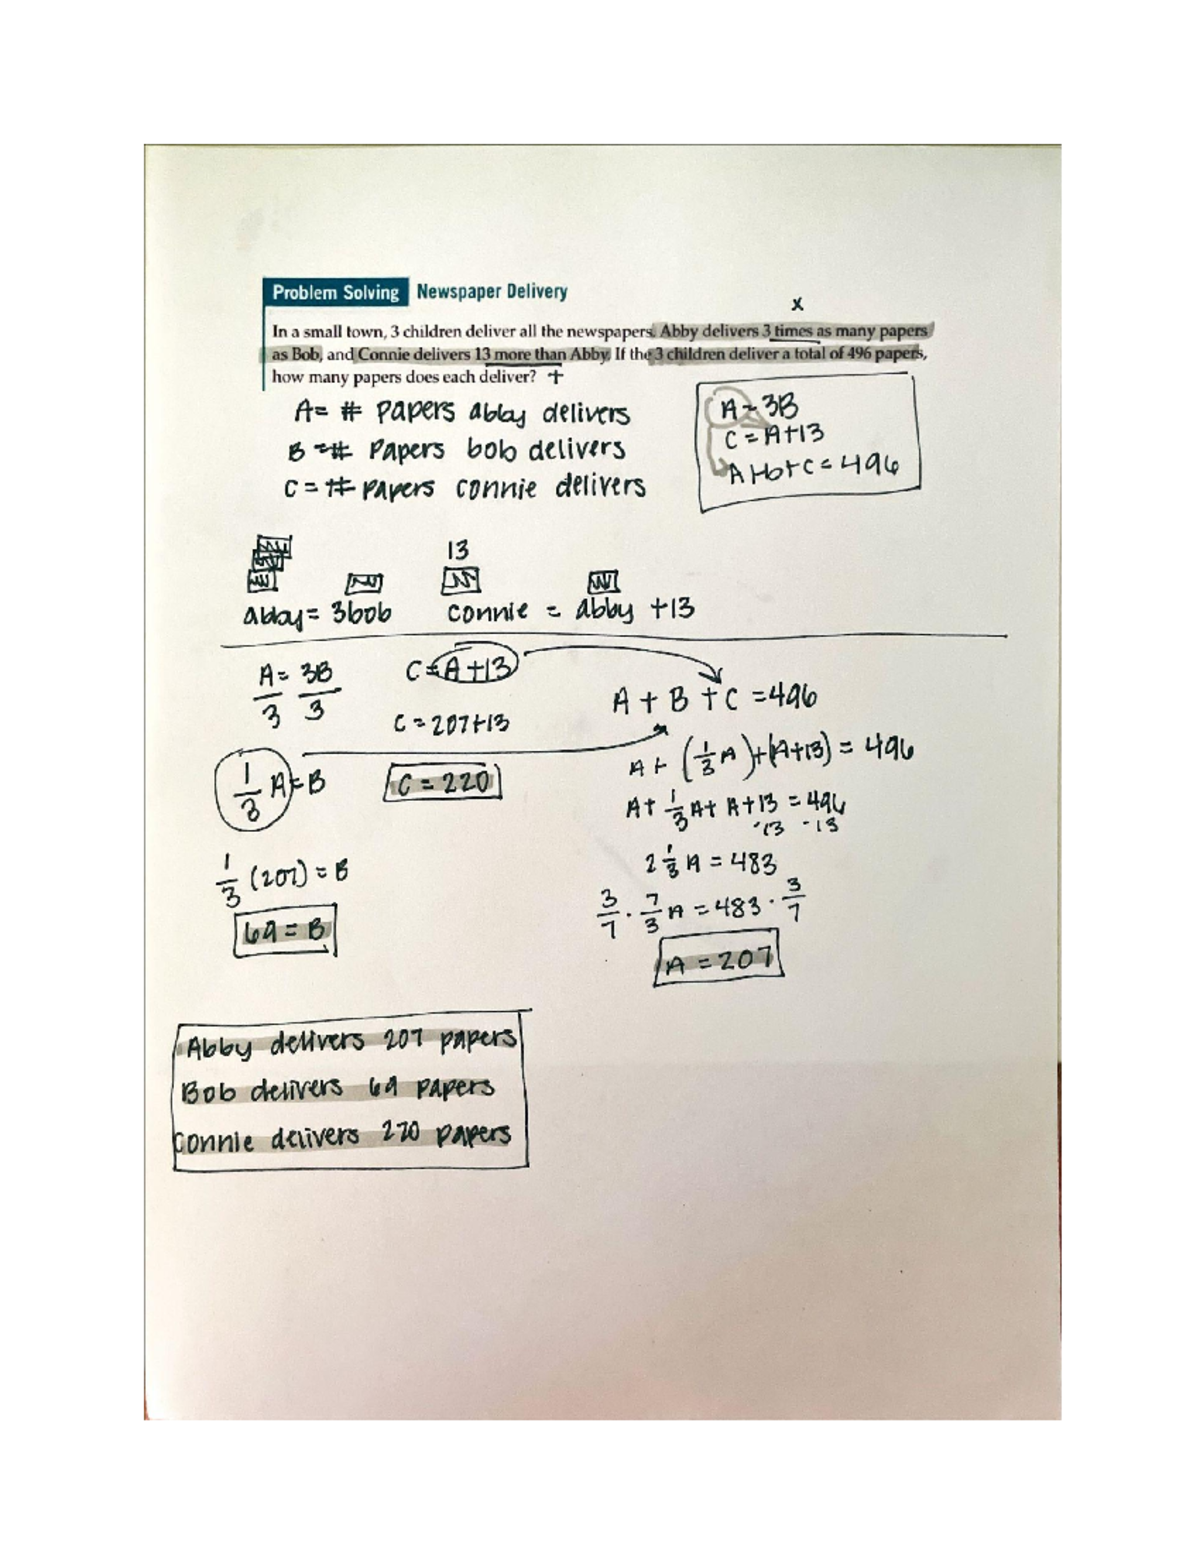 Problem Solving Newspaper Delivery
x
In a small town, 3 children deliver all the newspapers. Abby delivers 3 times as many papers
as Bob, and Connie delivers 13 more than Abby. If the 3 children deliver a total of 496 papers,
how many papers does each deliver? +
A = # papers abby delivers
B = # papers bob delivers
C = # papers connie delivers
A = 3B
C = A+13
A+b+C = 496
13
abby = 3bob connie = abby +13
A = 3B
3 3
1/3 A = B
1/3 (207) = B
69 = B
C = A+13
C = 207+13
C = 220
A + B + C = 496
A + (1/3 A) + (A+13) = 496
A + 1/3 A + A + 13 = 496
-13 -13
2 1/3 A = 483
3/7 · 7/3 A = 483 · 3/7
A = 207
Abby delivers 207 papers
Bob delivers 69 papers
Connie delivers 220 papers